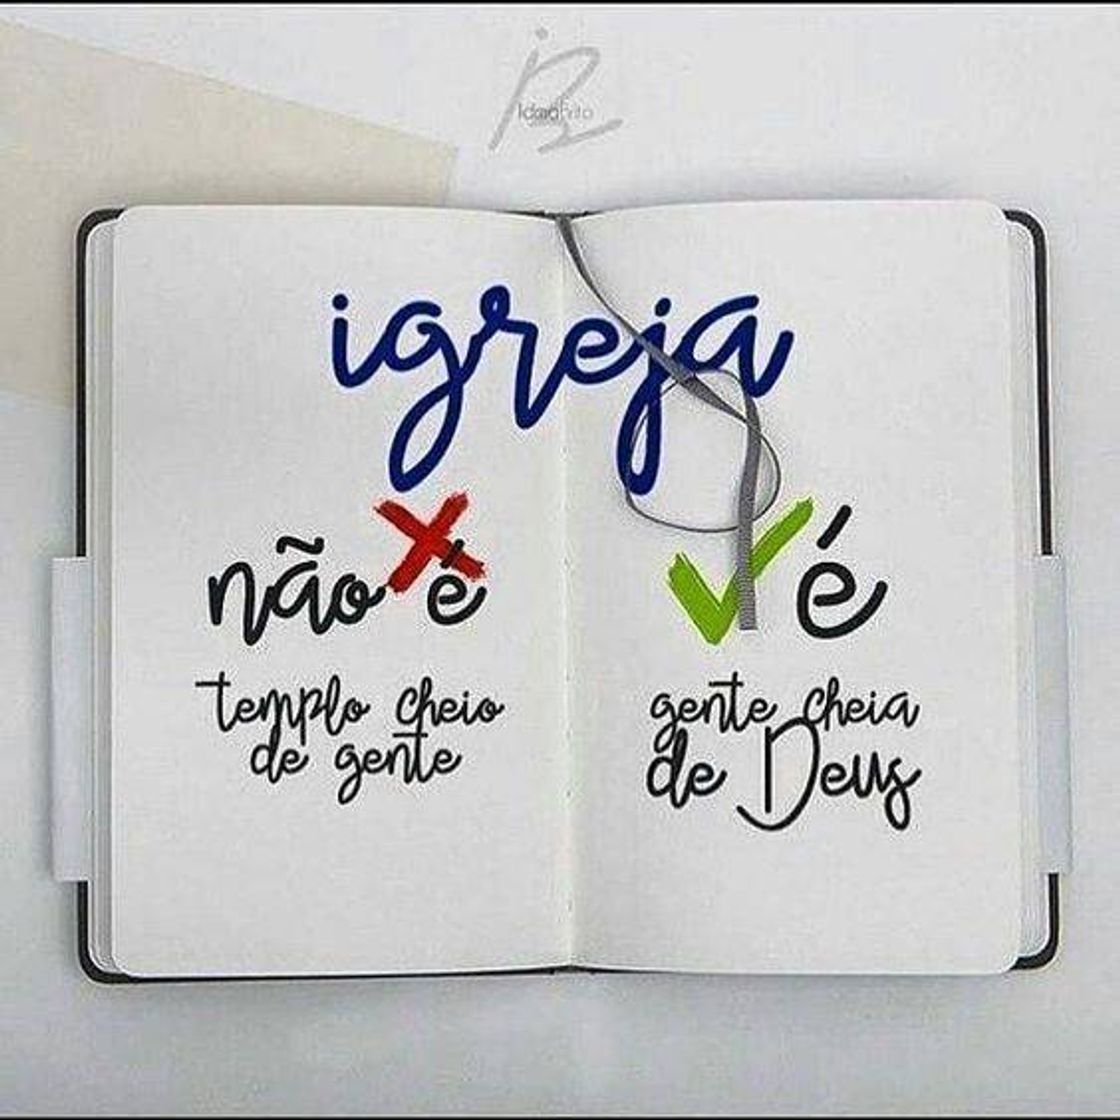 igreja
não é
templo cheio
de gente
é
gente cheia
de Deus